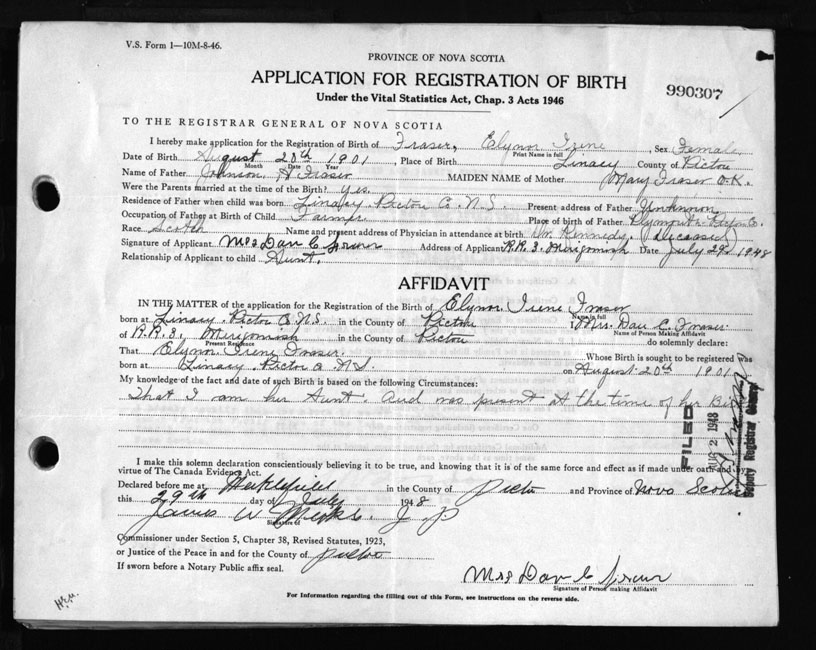 V.S. Form 1—10M-8-46.
PROVINCE OF NOVA SCOTIA
APPLICATION FOR REGISTRATION OF BIRTH
Under the Vital Statistics Act, Chap. 3 Acts 1946
990307
TO THE REGISTRAR GENERAL OF NOVA SCOTIA
I hereby make application for the Registration of Birth of Fraser, Elynor Irene, Sex Female
Print Name in full
Date of Birth August 20th 1901, Place of Birth Linacy County of Pictou
Month Date Year
Name of Father Johnson H Fraser MAIDEN NAME of Mother Mary Fraser O.K.
Were the Parents married at the time of the Birth? Yes.
Residence of Father when child was born Linacy Pictou Co. N.S. Present address of Father Unknown
Occupation of Father at Birth of Child Farmer Place of birth of Father Plymouth Pictou Co.
Race Scotch Name and present address of Physician in attendance at birth Dr. Kennedy. (deceased)
Signature of Applicant Mrs Dan C Fraser Address of Applicant R.R. 3. Merigomish Date July 29th 1948
Relationship of Applicant to child Aunt.
AFFIDAVIT
IN THE MATTER of the application for the Registration of the Birth of Elynor Irene Fraser
Name in full
born at Linacy Pictou Co N.S. in the County of Pictou I Mrs. Dan C. Fraser
Name of Person Making Affidavit
of R.R. 3. Merigomish in the County of Pictou do solemnly declare:
Present Residence
That Elynor Irene Fraser. Whose Birth is sought to be registered was
born at Linacy Pictou Co N.S. on August 20th 1901
My knowledge of the fact and date of such Birth is based on the following Circumstances:
That I am her Aunt. and was present at the time of her Birth
FILED
2 1948
Deputy Registrar General
I make this solemn declaration conscientiously believing it to be true, and knowing that it is of the same force and effect as if made under oath and by
virtue of The Canada Evidence Act.
Declared before me at in the County of Pictou and Province of Nova Scotia
this 29th day of July 1948
James W J P
Signature of
Commissioner under Section 5, Chapter 38, Revised Statutes, 1923,
or Justice of the Peace in and for the County of Pictou
If sworn before a Notary Public affix seal.
Mrs Dan C Fraser
Signature of Person making Affidavit
For Information regarding the filling out of this Form, see instructions on the reverse side.